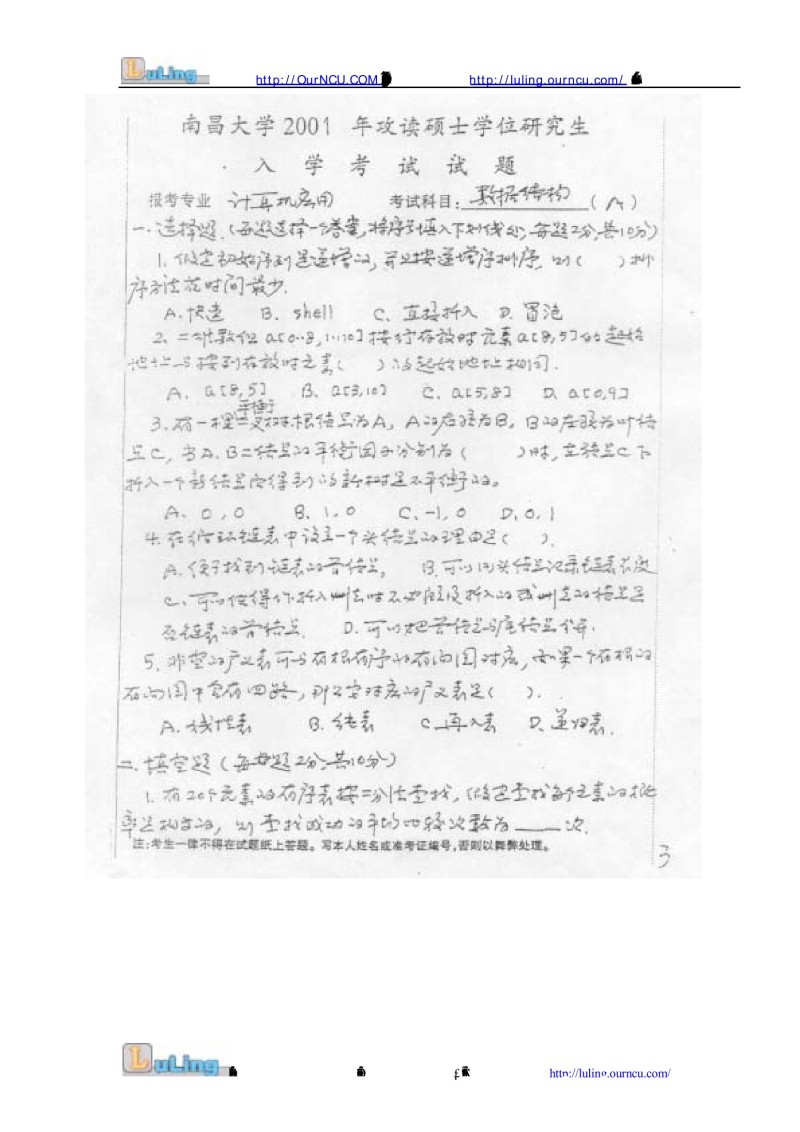 LuLing http://OurNCU.COM http://luling.ourncu.com/
南昌大学2001 年攻读硕士学位研究生
入 学 考 试 试 题
报考专业 计算机应用 考试科目: 数据结构 (A)
一.选择题.(每题选择一个答案,将序号填入下划线处,每题2分,共10分)
1.假定初始序列是递增的,并且按递增序排序,则( )排
序方法花时间最少.
A.快速 B. shell C. 直接插入 D. 冒泡
2. 二维数组 a[0..8,1..10]按行存放时元素a[8,5]的起始
地址与按列存放时元素( )的起始地址相同.
A. a[8,5] B. a[3,10] C. a[5,8] D. a[0,9]
平衡
3.有一棵二叉树根结点为A, A的右孩为B, B的左孩为叶结
点C, 当A、B二结点的平衡因子分别为( )时,在结点C下
插入一个新结点后得到的新树是不平衡的。
A. 0,0 B. 1,0 C. -1,0 D. 0,1
4.在循环链表中设立一个头结点的理由是( ).
A.便于找到链表的首结点, B.可以用头结点记录链表长度
C.可以使得作插入删去时不必顾及插入的或删去的结点是
否链表的首结点. D.可以把首结点与尾结点分开.
5.非空的广义表可与有根有序的有向图对应,如果一个有根的
有向图中含有回路,那么它对应的广义表是( ).
A.线性表 B. 纯表 C.再入表 D.递归表.
二.填空题(每题2分,共10分)
1.有20个元素的有序表按二分法查找,假定查找每个元素的概
率是相等的,则查找成功的平均比较次数为____次.
注:考生一律不得在试题纸上答题。写本人姓名或准考证编号,否则以舞弊处理。
3
LuLing http://luling.ourncu.com/